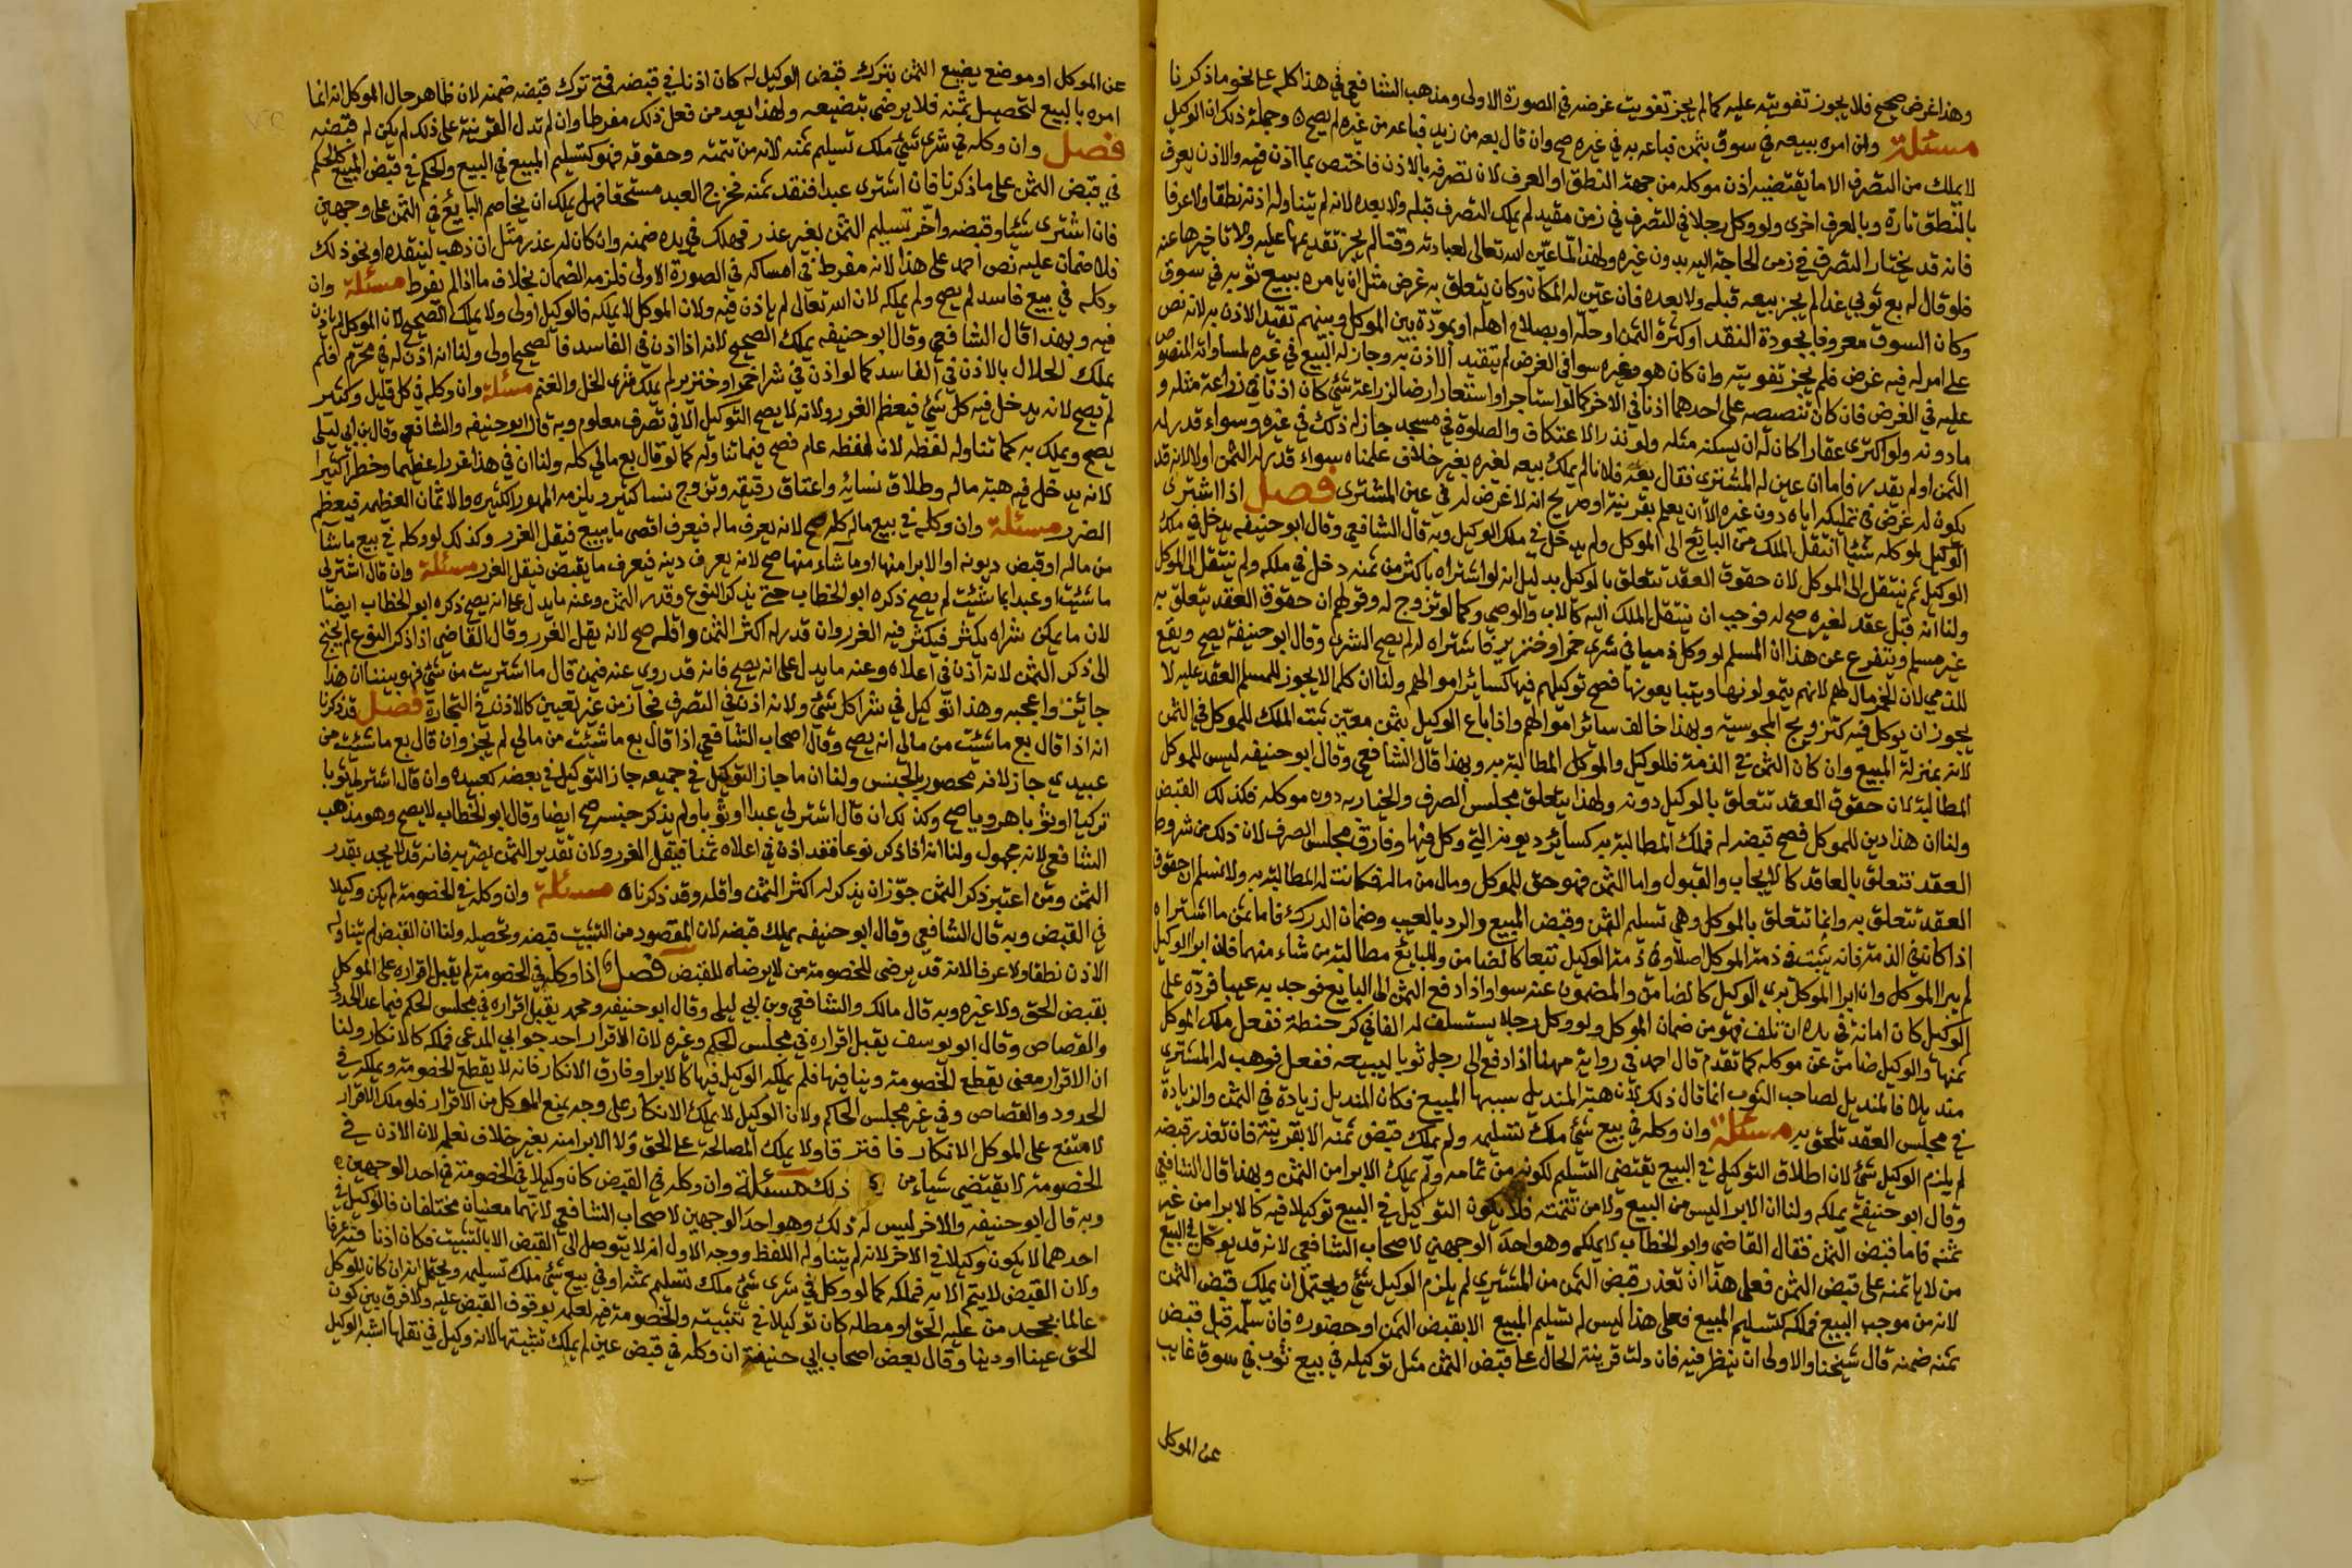 وهذا غرض صحيح فلا يجوز تفويته عليه كما لم يجز تفويت غرضه في الصورة الاولى ومذهب الشافعي في هذا كله على نحو ما ذكرنا
مسئلة وان امره ببيعه في سوق بثمن فباعه به في غيره صح وان قال بعه من زيد فباعه من غيره لم يصح وجملة ذلك ان الوكيل
لا يملك من التصرف الا ما يقتضيه اذن موكله من جهة النطق او العرف لان تصرفه بالاذن فاختص بما اذن فيه والاذن يعرف
بالنطق تارة وبالعرف اخرى ولو وكل رجلا في التصرف في زمن مقيد لم يملك التصرف قبله ولا بعده لانه لم يتناوله اذنه نطقا ولا عرفا
فانه قد يختار التصرف في زمن الحاجة اليه بدون غيره ولهذا لما عين الله تعالى لعبادته وقتا لم يجز تقديمها عليه ولا تاخيرها عنه
فلو قال له بع ثوبي غدا لم يجز بيعه قبله ولا بعده فان عين له المكان وكان يتعلق به غرض مثل ان يامره ببيع ثوبه في سوق
وكان السوق معروفا بجودة النقد او كثرة الثمن او حله او بصلاح اهله او بمودة بين الموكل وبينهم تقيد الاذن به لانه نص
على امر له فيه غرض فلم يجز تفويته وان كان هو وغيره سوا في الغرض لم يتقيد الاذن به وجاز له البيع في غيره لمساواته المنصوص
عليه في الغرض فكان تنصيصه على احدهما اذنا في الاخر كما لو استاجر او استعار ارضا لزراعة شئ كان اذنا في زراعة مثله و
ما دونه ولو اكترى عقارا كان له ان يسكنه مثله ولو نذر الاعتكاف والصلوة في مسجد جاز له ذلك في غيره وسواء قدر له
الثمن او لم يقدر فاما ان عين له المشتري فقال بعه فلانا لم يملك بيعه لغيره بغير خلاف علمناه سواء قدر له الثمن او لا لانه قد
يكون له غرض في تمليكه اياه دون غيره الا ان يعلم بقرينة او صريح انه لا غرض له في عين المشتري فصل اذا اشترى
الوكيل لموكله شيئا انتقل الملك من البائع الى الموكل ولم يدخل في ملك الوكيل وبه قال الشافعي وقال ابو حنيفه يدخل في ملك
الوكيل ثم ينتقل الى الموكل لان حقوق العقد تتعلق بالوكيل بدليل انه لو اشتراه باكثر من ثمنه دخل في ملكه ولم ينتقل الى الموكل
ولنا انه قبل عقد لغيره صح له فوجب ان ينتقل الملك اليه كالاب والوصي وكما لو تزوج له وقولهم ان حقوق العقد تتعلق به
غير مسلم ويتفرع عن هذا ان المسلم لو وكل ذميا في شرى خمرا وخنزير فاشتراه له لم يصح الشرى وقال ابو حنيفة يصح ويقع
للذمي لان الخمر مال لهم لانهم يتمولونها ويتبايعونها فصح توكيلهم فيها كسائر اموالهم ولنا ان كلما لا يجوز للمسلم العقد عليه لا
يجوز ان يوكل فيه كتزويج المجوسية وبهذا خالف سائر اموالهم واذا باع الوكيل بثمن معين ثبت الملك للموكل في الثمن
لانه بمنزلة المبيع وان كان الثمن في الذمة فللوكيل والموكل المطالبة به وبهذا قال الشافعي وقال ابو حنيفه ليس للموكل
المطالبة لان حقوق العقد تتعلق بالوكيل دونه ولهذا يتعلق مجلس الصرف والخيار به دون موكله فكذلك القبض
ولنا ان هذا دين للموكل فصح قبضه له فملك المطالبة به كسائر ديونه التي وكل فيها وفارق مجلس الصرف لان ذلك من شروط
العقد فتتعلق بالعاقد كالايجاب والقبول واما الثمن فهو حق للموكل ومال من ماله فكانت له المطالبة به ولا نسلم ان حقوق
العقد تتعلق به وانما تتعلق بالموكل وهي تسليم الثمن وقبض المبيع والرد بالعيب وضمان الدرك فاما ثمن ما اشتراه
اذا كان في الذمة فانه يثبت في ذمة الموكل اصلا وفي ذمة الوكيل تبعا كالضامن وللبايع مطالبة من شاء منهما فان ابرا الوكيل
لم يبرا الموكل وان ابرا الموكل برئ الوكيل كالضامن والمضمون عنه سوا واذا دفع الثمن الى البايع فوجد به عيبا فرده على
الوكيل كان امانة في يده ان تلف فهو من ضمان الموكل ولو وكل رجلا يستسلف له الفا في كر حنطة ففعل ملك الموكل
ثمنها والوكيل ضامن عن موكله كما تقدم قال احمد في رواية مهنا اذا دفع الى رجل ثوبا ليبيعه ففعل فوهب له المشتري
منديلا فالمنديل لصاحب الثوب انما قال ذلك لان هبة المنديل سببها المبيع فكان المنديل زيادة في الثمن والزيادة
في مجلس العقد تلحق به مسئلة وان وكله في بيع شئ ملك تسليمه ولم يملك قبض ثمنه الا بقرينة فان تعذر قبضه
لم يلزم الوكيل شئ لان اطلاق التوكيل في البيع يقتضي التسليم لكونه من تمامه ولم يملك الابرا من الثمن وبهذا قال الشافعي
وقال ابو حنيفة يملكه ولنا ان الابرا ليس من البيع ولا من تتمته فلا يكون التوكيل في البيع توكيلا فيه كالابرا من غير
ثمنه فاما قبض الثمن فقال القاضي وابو الخطاب لا يملكه وهو احد الوجهين لاصحاب الشافعي لانه قد يوكل في البيع
من لا يامنه على قبض الثمن فعلى هذا ان تعذر قبض الثمن من المشتري لم يلزم الوكيل شئ ويحتمل ان يملك قبض الثمن
لانه من موجب البيع فملكه كتسليم المبيع فعلى هذا ليس له تسليم المبيع الا بقبض الثمن او حضوره فان سلمه قبل قبض
ثمنه ضمنه قال شيخنا والاولى ان ينظر فيه فان دلت قرينة الحال على قبض الثمن مثل توكيله في بيع ثوب في سوق غايب
عن الموكل
عن الموكل او موضع يضيع الثمن بترك قبض الوكيل له كان اذنا في قبضه فمتى ترك قبضه ضمنه لان ظاهر حال الموكل انه انما
امره بالبيع لتحصيل ثمنه فلا يرضى بتضييعه ولهذا يعد من فعل ذلك مفرطا وان لم تدل القرينة على ذلك لم يكن له قبضه
فصل وان وكله في شرى شئ ملك تسليم ثمنه لانه من تتمته وحقوقه فهو كتسليم المبيع في البيع والحكم في قبض المبيع كالحكم
في قبض الثمن على ما ذكرنا فان اشترى عبدا فنقد ثمنه فخرج العبد مستحقا فهل يملك ان يخاصم البايع في الثمن على وجهين
فان اشترى شئا وقبضه واخر تسليم الثمن لغير عذر فهلك في يده ضمنه وان كان له عذر مثل ان ذهب لينقده او نحو ذلك
فلا ضمان عليه نص احمد على هذا لانه مفرط في امساكه في الصورة الاولى فلزمه الضمان بخلاف ما اذا لم يفرط مسئلة وان
وكله في بيع فاسد لم يصح ولم يملكه لان الله تعالى لم ياذن فيه ولان الموكل لا يملكه فالوكيل اولى ولا يملك الصحيح لان الموكل لم ياذن
فيه وبهذا قال الشافعي وقال ابو حنيفه يملك الصحيح لانه اذا اذن في الفاسد فالصحيح اولى ولنا انه اذن له في محرم فلم
يملك الحلال بالاذن في الفاسد كما لو اذن في شرا خمر او خنزير لم يملك شرى الخل والغنم مسئلة وان وكله في كل قليل وكثير
لم يصح لانه يدخل فيه كل شئ فيعظم الغرر ولانه لا يصح التوكيل الا في تصرف معلوم وبه قال ابو حنيفه والشافعي وقال بن ابي ليلى
يصح ويملك به كلما تناوله لفظه لان لفظه عام فصح فيما تناوله كما لو قال بع مالي كله ولنا ان في هذا غررا عظيما وخطرا كثيرا
لانه يدخل فيه هبة ماله وطلاق نسائه واعتاق رقيقه وتزوج نسا كثير ويلزمه المهور الكثيره والاثمان العظيمه فيعظم
الضرر مسئلة وان وكله في بيع ماله كله صح لانه يعرف ماله فيعرف اقصى ما يبيع فيقل الغرر وكذلك لو وكله في بيع ما شا
من ماله او قبض ديونه او الابرا منها او ما شاء منها صح لانه يعرف دينه فيعرف ما يقبض فيقل الغرر مسئلة وان قال اشتر لي
ما شئت او عبدا بما شئت لم يصح ذكره ابو الخطاب حتى يذكر النوع وقدر الثمن وعنه ما يدل على انه يصح ذكره ابو الخطاب ايضا
لان ما يمكن شراه يكثر فيكثر فيه الغرر وان قدر له اكثر الثمن واقله صح لانه يقل الغرر وقال القاضي اذا ذكر النوع لم يحتج
الى ذكر الثمن لانه اذن في اعلاه وعنه ما يدل على انه يصح فانه قد روي عنه فيمن قال ما اشتريت من شئ فهو بيننا ان هذا
جائز واعجبه وهذا توكيل في شرا كل شئ ولانه اذن في التصرف فجاز من غير تعيين كالاذن في التجارة فصل قد ذكرنا
انه اذا قال بع ما شئت من مالي انه يصح وقال اصحاب الشافعي اذا قال بع ما شئت من مالي لم يجز وان قال بع ما شئت من
عبيدي جاز لانه محصور بالجنس ولنا ان ما جاز التوكيل في جميعه جاز التوكيل في بعضه كعبيده وان قال اشتر لي عبدا
تركيا او ثوبا هرويا صح وكذلك ان قال اشتر لي عبدا او ثوبا ولم يذكر جنسه صح ايضا وقال ابو الخطاب لا يصح وهو مذهب
الشافعي لانه مجهول ولنا انه اذا ذكر نوعا فقد اذن في اعلاه ثمنا فيقل الغرر ولان تقدير الثمن يضر به فانه قد لا يجد بقدر
الثمن ومن اعتبر ذكر الثمن جوز ان يذكر له اكثر الثمن واقله وقد ذكرناه مسئلة وان وكله في الخصومة لم يكن وكيلا
في القبض وبه قال الشافعي وقال ابو حنيفه يملك قبضه لان المقصود من التثبيت قبضه وتحصيله ولنا ان القبض لم يتناوله
الاذن نطقا ولا عرفا لانه قد يرضى للخصومة من لا يرضاه للقبض فصل اذا وكله في الخصومة لم يقبل اقراره على الموكل
بقبض الحق ولا غيره وبه قال مالك والشافعي وبن ابي ليلى وقال ابو حنيفه ومحمد يقبل اقراره في مجلس الحكم فيما عدا الحدود
والقصاص وقال ابو يوسف يقبل اقراره في مجلس الحكم وغيره لان الاقرار احد جوابي المدعي فملكه كالانكار ولنا
ان الاقرار معنى يقطع الخصومة وينافيها فلم يملكه الوكيل فيها كالابرا وفارق الانكار فانه لا يقطع الخصومة ويملكه في
الحدود والقصاص وفي غير مجلس الحاكم ولان الوكيل لا يملك الانكار على وجه يمنع الموكل من الاقرار فلو ملك الاقرار
لامتنع على الموكل الانكار فافترقا ولا يملك المصالحة على الحق ولا الابرا منه بغير خلاف نعلمه لان الاذن في
الخصومة لا يقتضي شياء من ذلك مسئلة وان وكله في القبض كان وكيلا في الخصومة في احد الوجهين
وبه قال ابو حنيفه والاخر ليس له ذلك وهو احد الوجهين لاصحاب الشافعي لانهما معنيان مختلفان فالوكيل في
احدهما لا يكون وكيلا في الاخر لانه لم يتناوله اللفظ ووجه الاول انه لا يتوصل الى القبض الا بالتثبيت فكان اذنا فيه عرفا
ولان القبض لا يتم الا به فملكه كما لو وكل في شرى شئ ملك تسليم ثمنه او في بيع شئ ملك تسليمه ويحتمل انه ان كان الموكل
عالما بجحد من عليه الحق او مطله كان توكيلا في تثبيته والخصومة فيه لعلمه بوقوف القبض عليه ولا فرق بين كون
الحق عينا او دينا وقال بعض اصحاب ابي حنيفة ان وكله في قبض عين لم يملك تثبيتها لانه وكيل في نقلها اشبه الوكيل